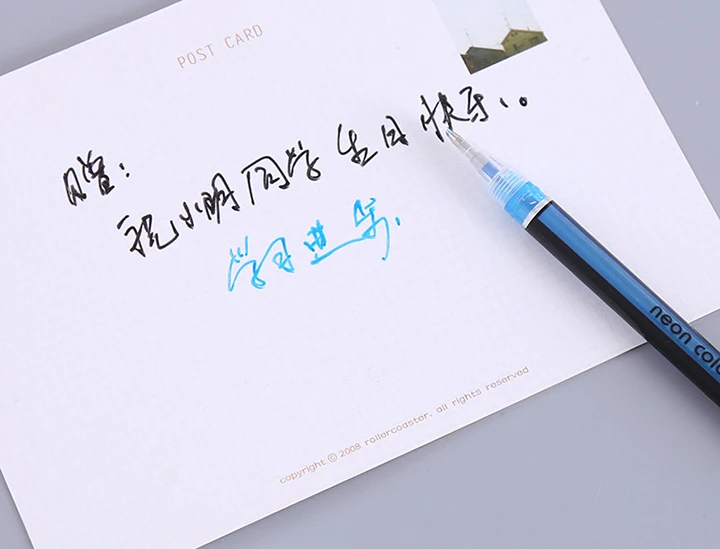 POST CARD
祝小明同学生日快乐!。
学习进步!
copyright © 2008 rollercoaster. all rights reserved
neon colo